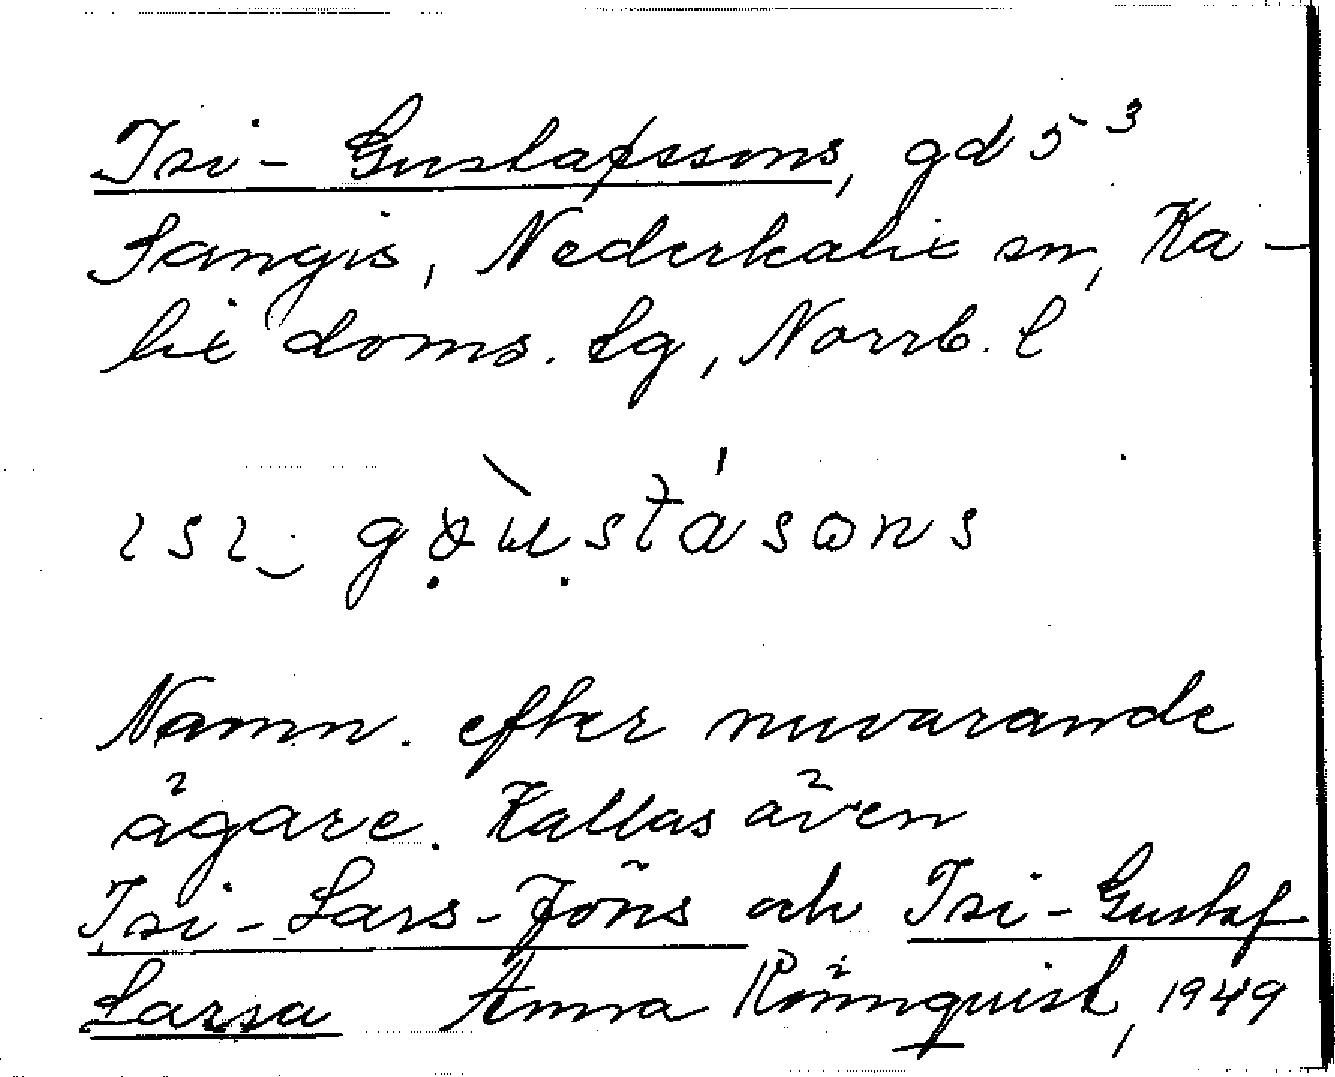 Isi-Gustafssons, gd 5³
Sangis, Nederkalix sn, Ka-
lix doms. lg, Norrb. l
ɩsɩ‿ gə̣ùṣstásɷns
Namn. efter nuvarande
ägare. Kallas även
Isi-Lars-Jöns och Isi-Gustaf
Larsa Anna Rönnquist, 1949